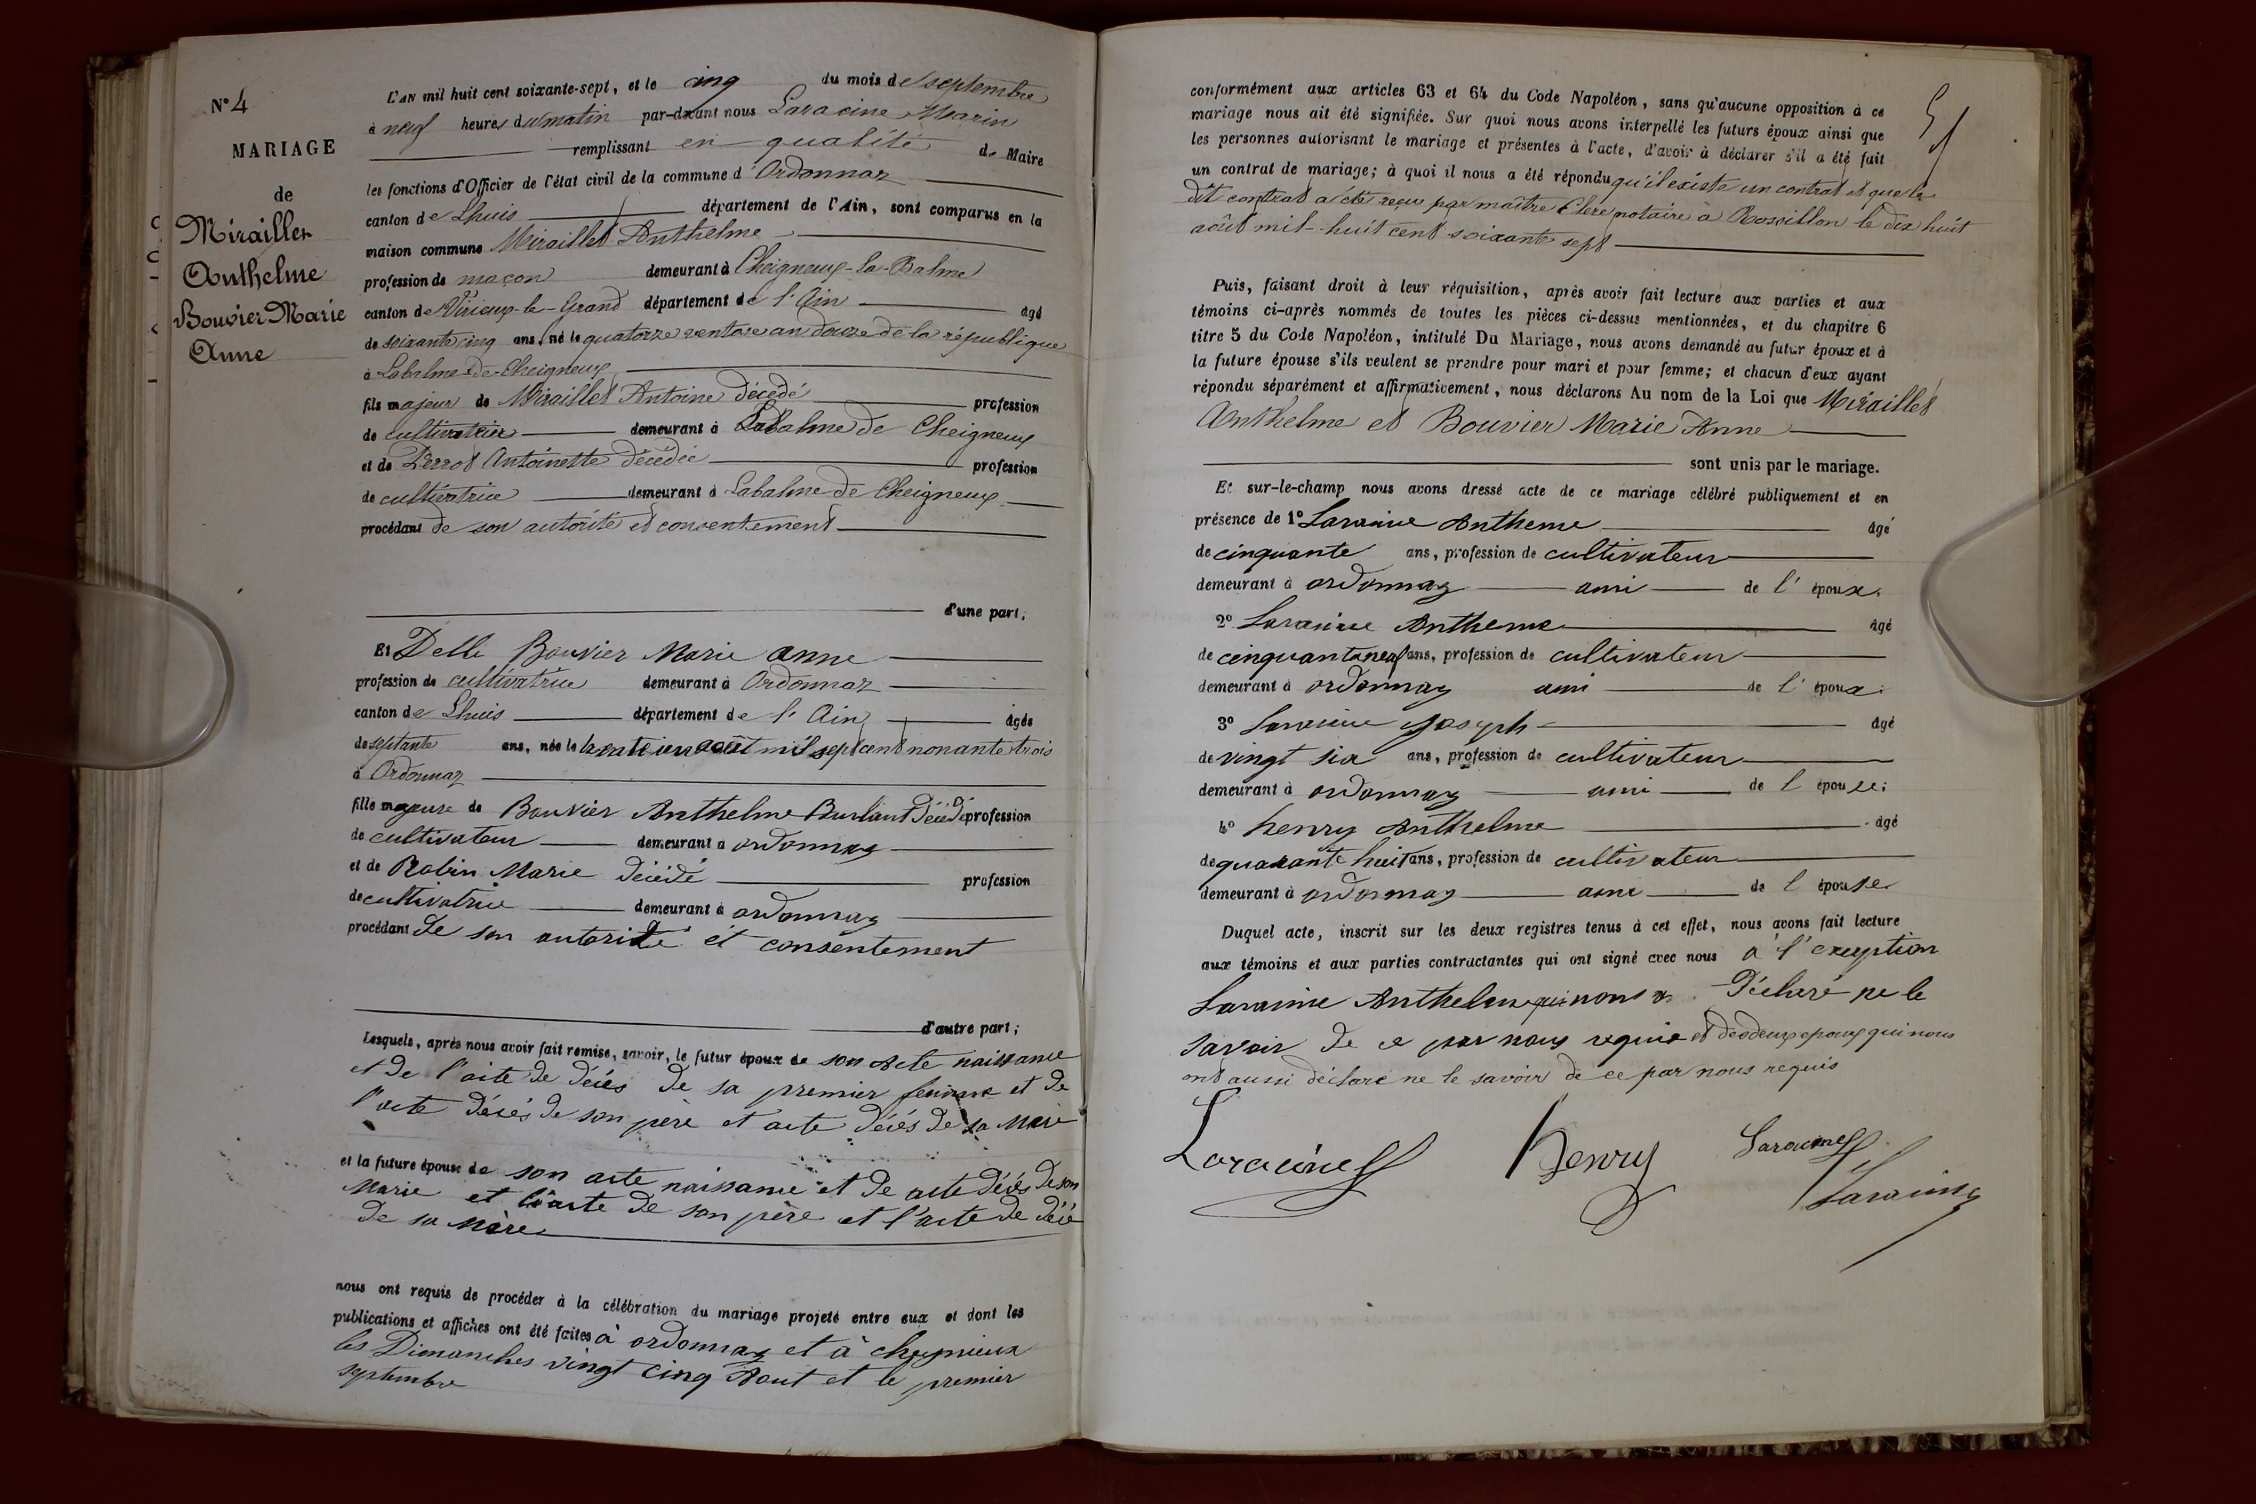 N° 4
MARIAGE
de
Miraillet
Anthelme
Bouvier Marie
Anne
L'AN mil huit cent soixante-sept, et le cinq du mois de septembre
à neuf heures du matin par-devant nous Laracine Marin
remplissant en qualité de Maire
les fonctions d'Officier de l'état civil de la commune d'Ordonnaz
canton de Lhuis département de l'Ain, sont comparus en la
maison commune Miraillet Anthelme
profession de maçon demeurant à Cheigneux-la-Balme
canton de Virieux-le-Grand département de l'Ain âgé
de soixante cinq ans, né le quatorze ventose an douze de la république
à Labalme-de-Cheigneux
fils majeur de Miraillet Antoine décédé profession
de cultivateur demeurant à Labalme de Cheigneux
et de Perrot Antoinette décédée profession
de cultivatrice demeurant à Labalme de Cheigneux
procédant de son autorité et consentement
d'une part;
Et Delle Bouvier Marie anne
profession de cultivatrice demeurant à Ordonnaz
canton de Lhuis département de l'Ain âgée
de septante ans, née le trente un août mil sept cent nonante trois
à Ordonnaz
fille majeure de Bouvier Anthelme Burlant décédé profession
de cultivateur demeurant à ordonnaz
et de Robin Marie décédé profession
de cultivatrice demeurant à ordonnaz
procédant de son autorité et consentement
d'autre part;
Lesquels, après nous avoir fait remise, savoir, le futur époux de son acte naissance
et de l'acte de décés de sa premier femme et de
l'acte décés de son père et acte décés de sa Mère
et la future épouse de son acte naissance et de acte décés de son
Marie et l'acte de son père et l'acte de décé
de sa Mère
nous ont requis de procéder à la célébration du mariage projeté entre eux et dont les
publications et affiches ont été faites à ordonnaz et à cheignieux
les Dimanches vingt cinq Aout et le premier
septembre
conformément aux articles 63 et 64 du Code Napoléon, sans qu'aucune opposition à ce
mariage nous ait été signifiée. Sur quoi nous avons interpellé les futurs époux ainsi que
les personnes autorisant le mariage et présentes à l'acte, d'avoir à déclarer s'il a été fait
un contrat de mariage; à quoi il nous a été répondu qu'il existe un contrat et que le
dit contrat a été reçu par maître Clerc notaire à Rossillon le dix huit
août mil-huit cent soixante sept
Puis, faisant droit à leur réquisition, après avoir fait lecture aux parties et aux
témoins ci-après nommés de toutes les pièces ci-dessus mentionnées, et du chapitre 6
titre 5 du Code Napoléon, intitulé Du Mariage, nous avons demandé au futur époux et à
la future épouse s'ils veulent se prendre pour mari et pour femme; et chacun d'eux ayant
répondu séparément et affirmativement, nous déclarons Au nom de la Loi que Miraillet
Anthelme et Bouvier Marie Anne
sont unis par le mariage.
Et sur-le-champ nous avons dressé acte de ce mariage célébré publiquement et en
présence de 1° Laracine Antheme âgé
de cinquante ans, profession de cultivateur
demeurant à ordonnaz ami de l'époux.
2° Laracine Antheme âgé
de cinquante neuf ans, profession de cultivateur
demeurant à ordonnaz ami de l'époux.
3° Laracine Joseph âgé
de vingt six ans, profession de cultivateur
demeurant à ordonnaz ami de l épouse;
4° henry Anthelme âgé
de quarante huit ans, profession de cultivateur
demeurant à ordonnaz ami de l épouse
Duquel acte, inscrit sur les deux registres tenus à cet effet, nous avons fait lecture
aux témoins et aux parties contractantes qui ont signé avec nous à l'exception
Laracine Anthelme qui nous a Déclaré ne le
savoir de ce par nous requis et des deux epoux qui nous
ont aussi déclaré ne le savoir de ce par nous requis
Laracine henry Laracine
Laracine